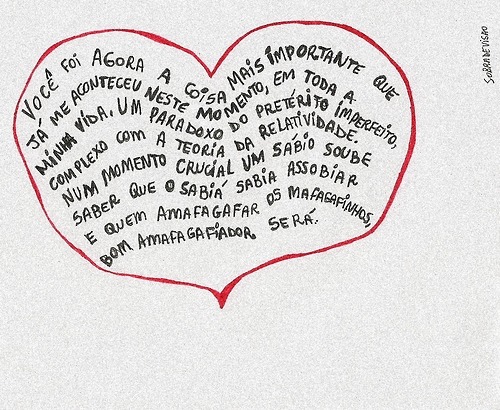 VOCÊ FOI AGORA A COISA MAIS IMPORTANTE QUE
JÁ ME ACONTECEU NESTE MOMENTO, EM TODA A
MINHA VIDA. UM PARADOXO DO PRETÉRITO IMPERFEITO,
COMPLEXO COM A TEORIA DA RELATIVIDADE.
NUM MOMENTO CRUCIAL UM SÁBIO SOUBE
SABER QUE O SABIÁ SABIA ASSOBIAR
E QUEM AMAFAGAFAR OS MAFAGAFINHOS,
BOM AMAFAGAFIADOR SERÁ.
SOBRADEVISAO